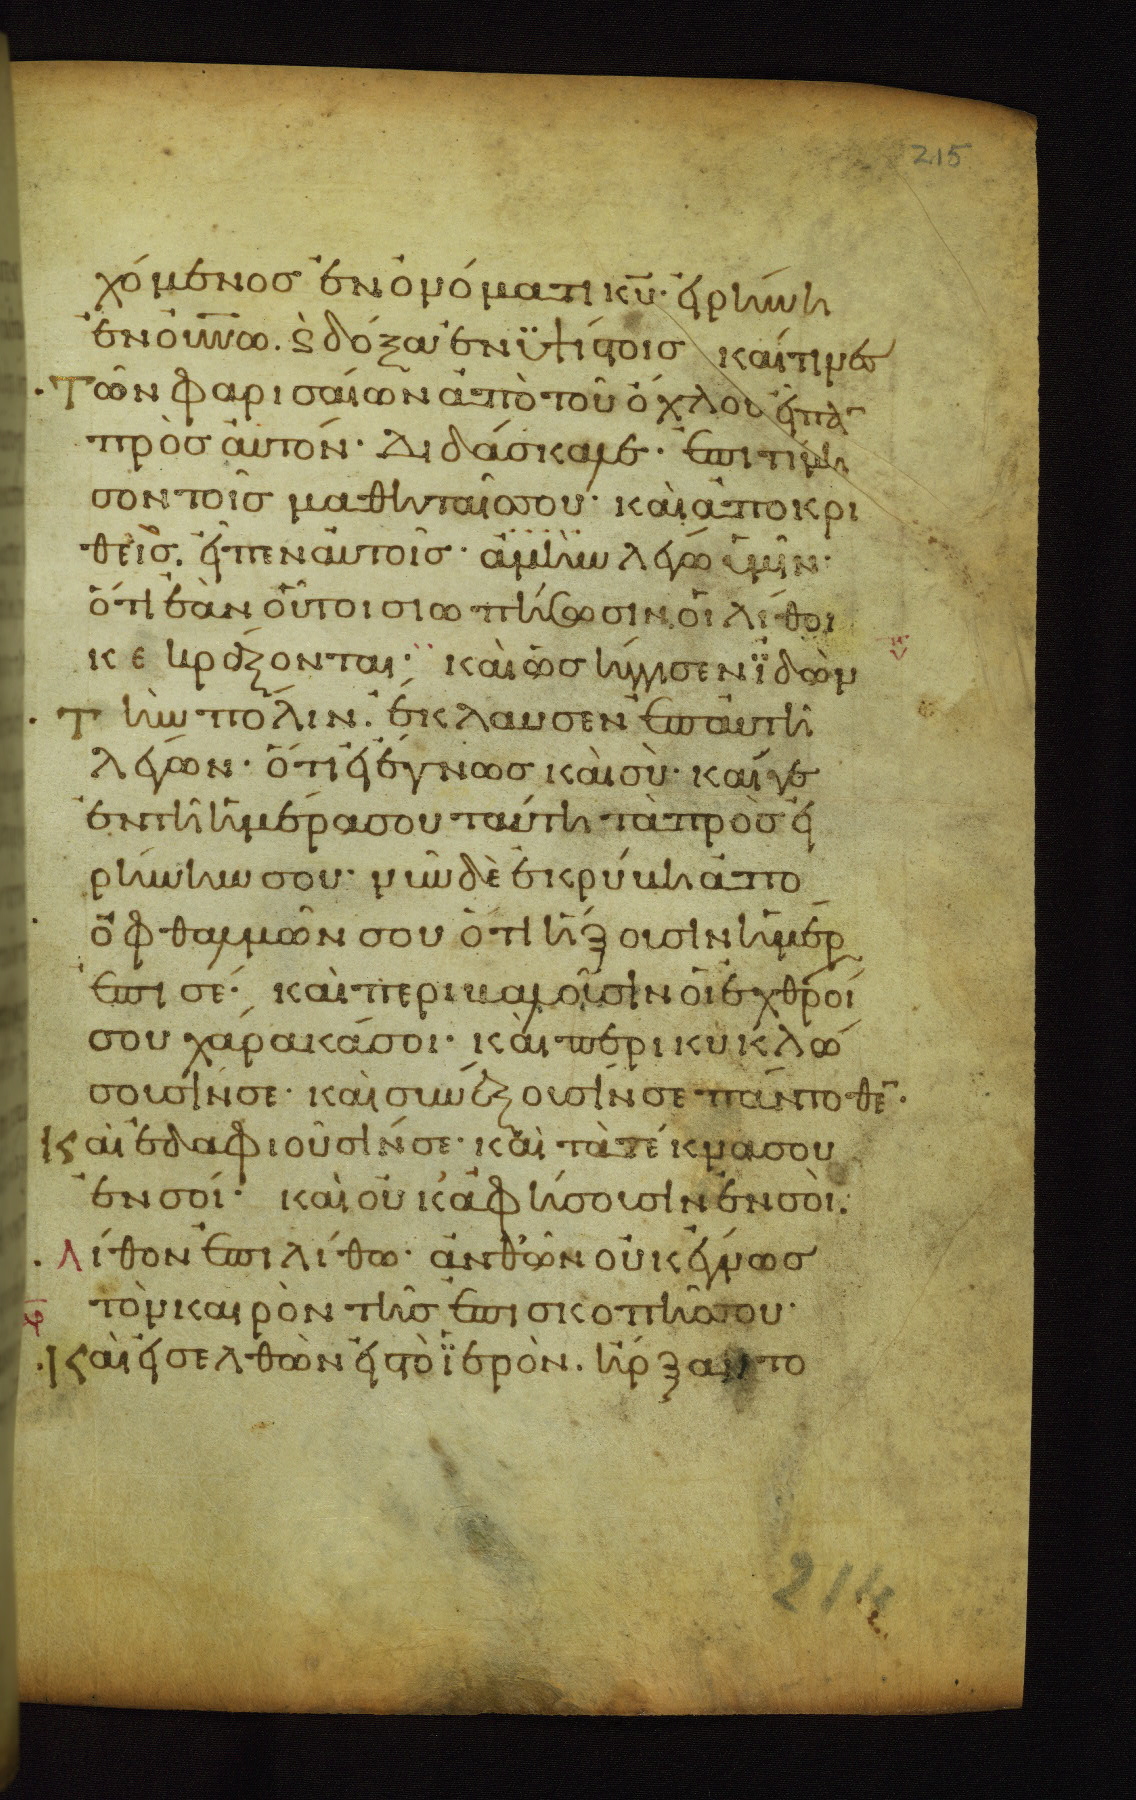 215
χόμενος ἐν ὀνόματι κ̅υ̅· εἰρήνη
ἐν οὐ̅ν̅ω̅. ϛ̀ δόξα ἐν ὑψίστοις καί τινες
τῶν φαρισαίων ἀπὸ τοῦ ὄχλου εἶπον
πρὸς αὐτόν· Διδάσκαλε· ἐπιτίμη
σον τοῖς μαθηταῖς σου· καὶ ἀποκρι
θεὶς. εἶπεν αὐτοῖς· ἀμὴν λέγω ὑμῖν·
ὅτι ἐὰν οὗτοι σιωπήσωσιν οἱ λίθοι
κεκράξονται· καὶ ὡς ἤγγισεν ἰδὼν
τὴν πόλιν. ἔκλαυσεν ἐπ αὐτῇ
λέγων· ὅτι εἰ ἔγνως καὶ σὺ· καί γε
ἐν τῇ ἡμέρα σου ταύτη τὰ πρὸς εἰ
ρήνην σου· νῦν δὲ ἐκρύβη ἀπο
ὀφθαλμῶν σου ὅτι ἥξουσιν ἡμέρ
ἐπι σέ· καὶ περιβαλοῦσιν οἱ ἐχθροί
σου χάρακά σοι· καὶ περικυκλώ
σουσίν σε· καὶ συνέξουσίν σε πάντοθε̄·
Καὶ ἐδαφιοῦσίν σε· καὶ τὰ τέκνα σου
ἐν σοί· καὶ οὐκ ἀφήσουσιν ἐν σοὶ.
λίθον ἐπι λίθω· ἀνθ ὧν οὐκ ἔγνως
τὸν καιρὸν τῆς ἐπισκοπῆς σου·
Καὶ εἰσελθὼν εἰς τὸ ἱερὸν. ἤρξαντο
214